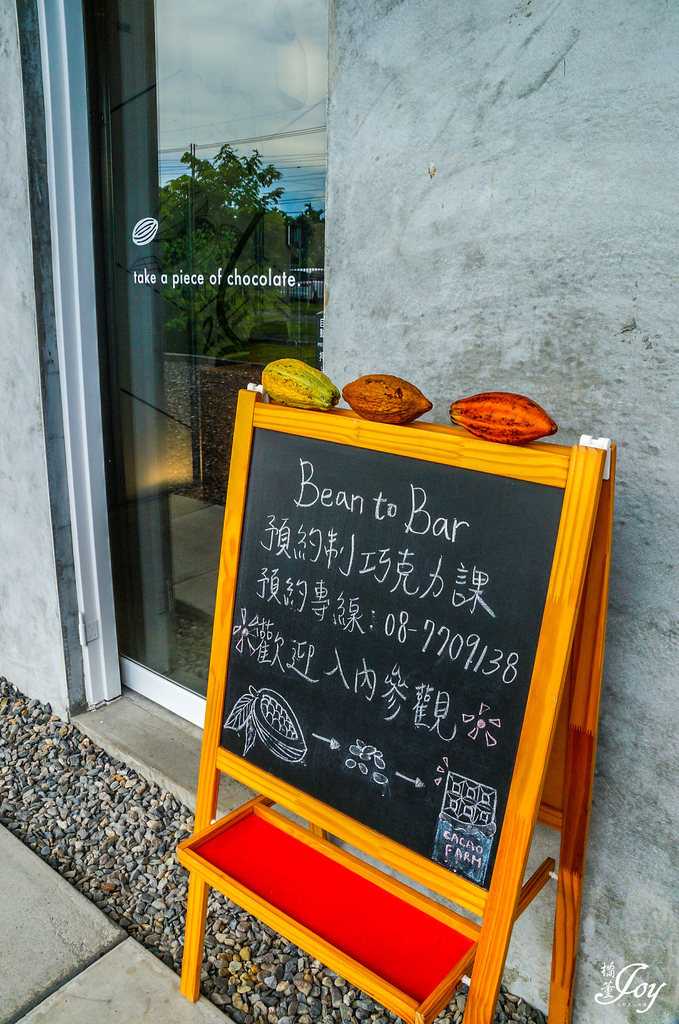 take a piece of chocolate.
Bean to Bar
預約制巧克力課
預約專線：08-7709138
歡迎入內參觀
CACAO
FARM
Joy